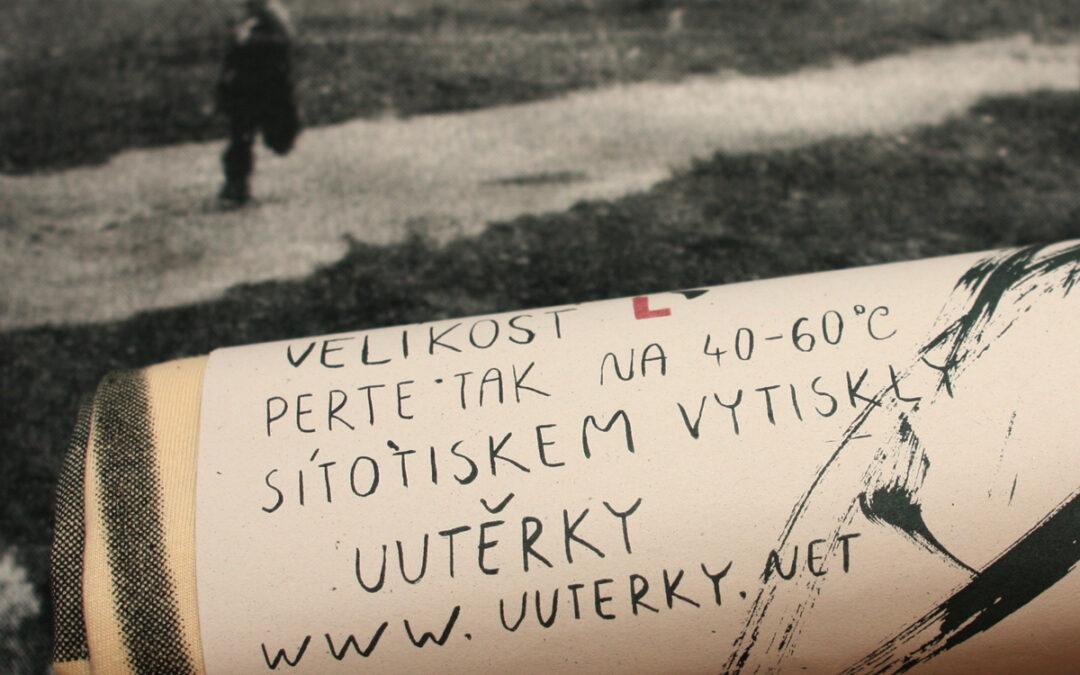 VELIKOST L
PERTE TAK NA 40-60°C
SÍTOTISKEM VYTISKLY
UUTĚRKY
WWW.UUTERKY.NET